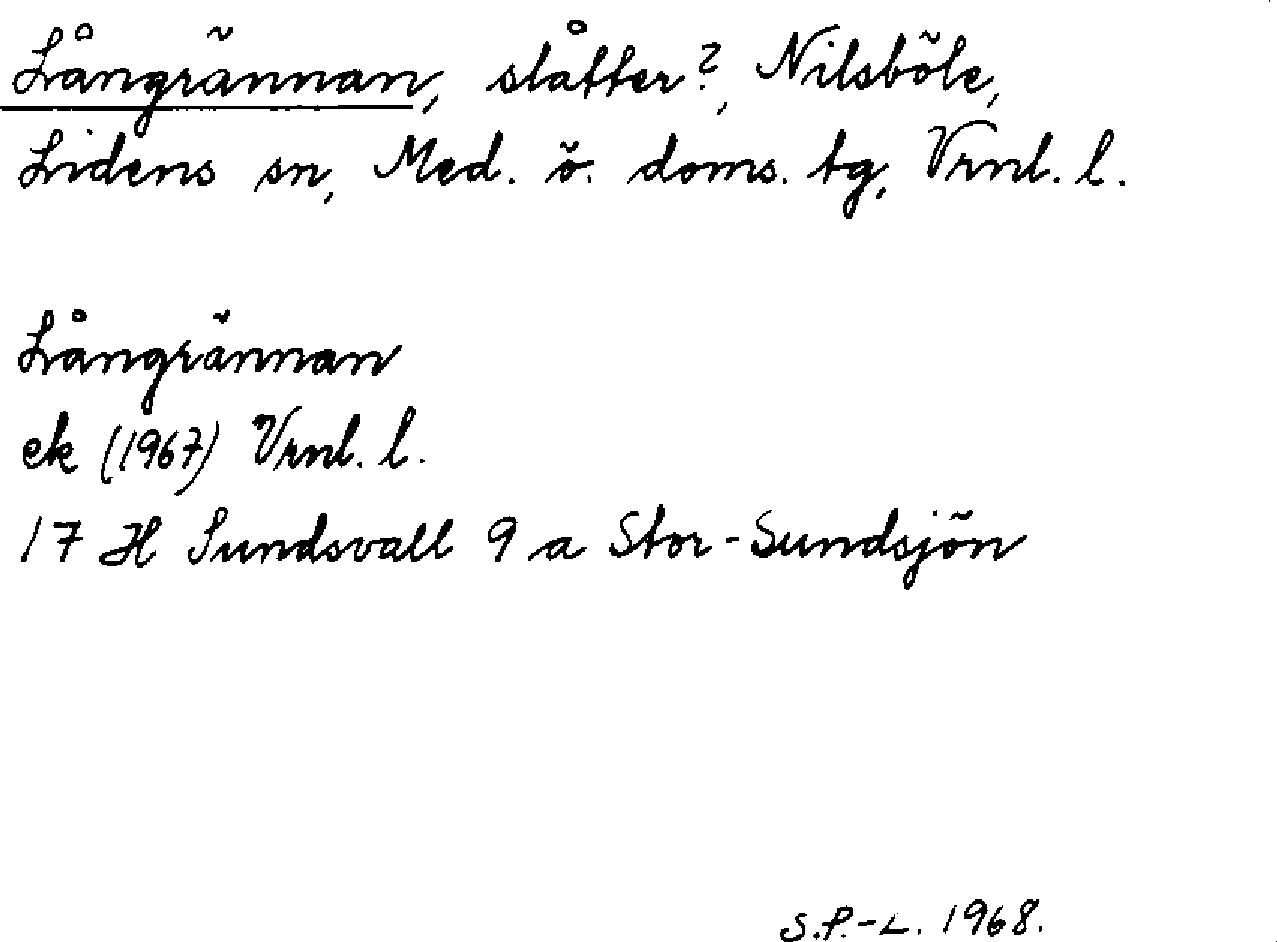 Långrännan, slåtter?, Nilsböle,
Lidens sn, Med. ö. doms. tg, Vrnl. l.
Långrännan
ek (1967) Vrnl. l.
17 H Sundsvall 9 a Stor-Sundsjön
S.P.-L. 1968.